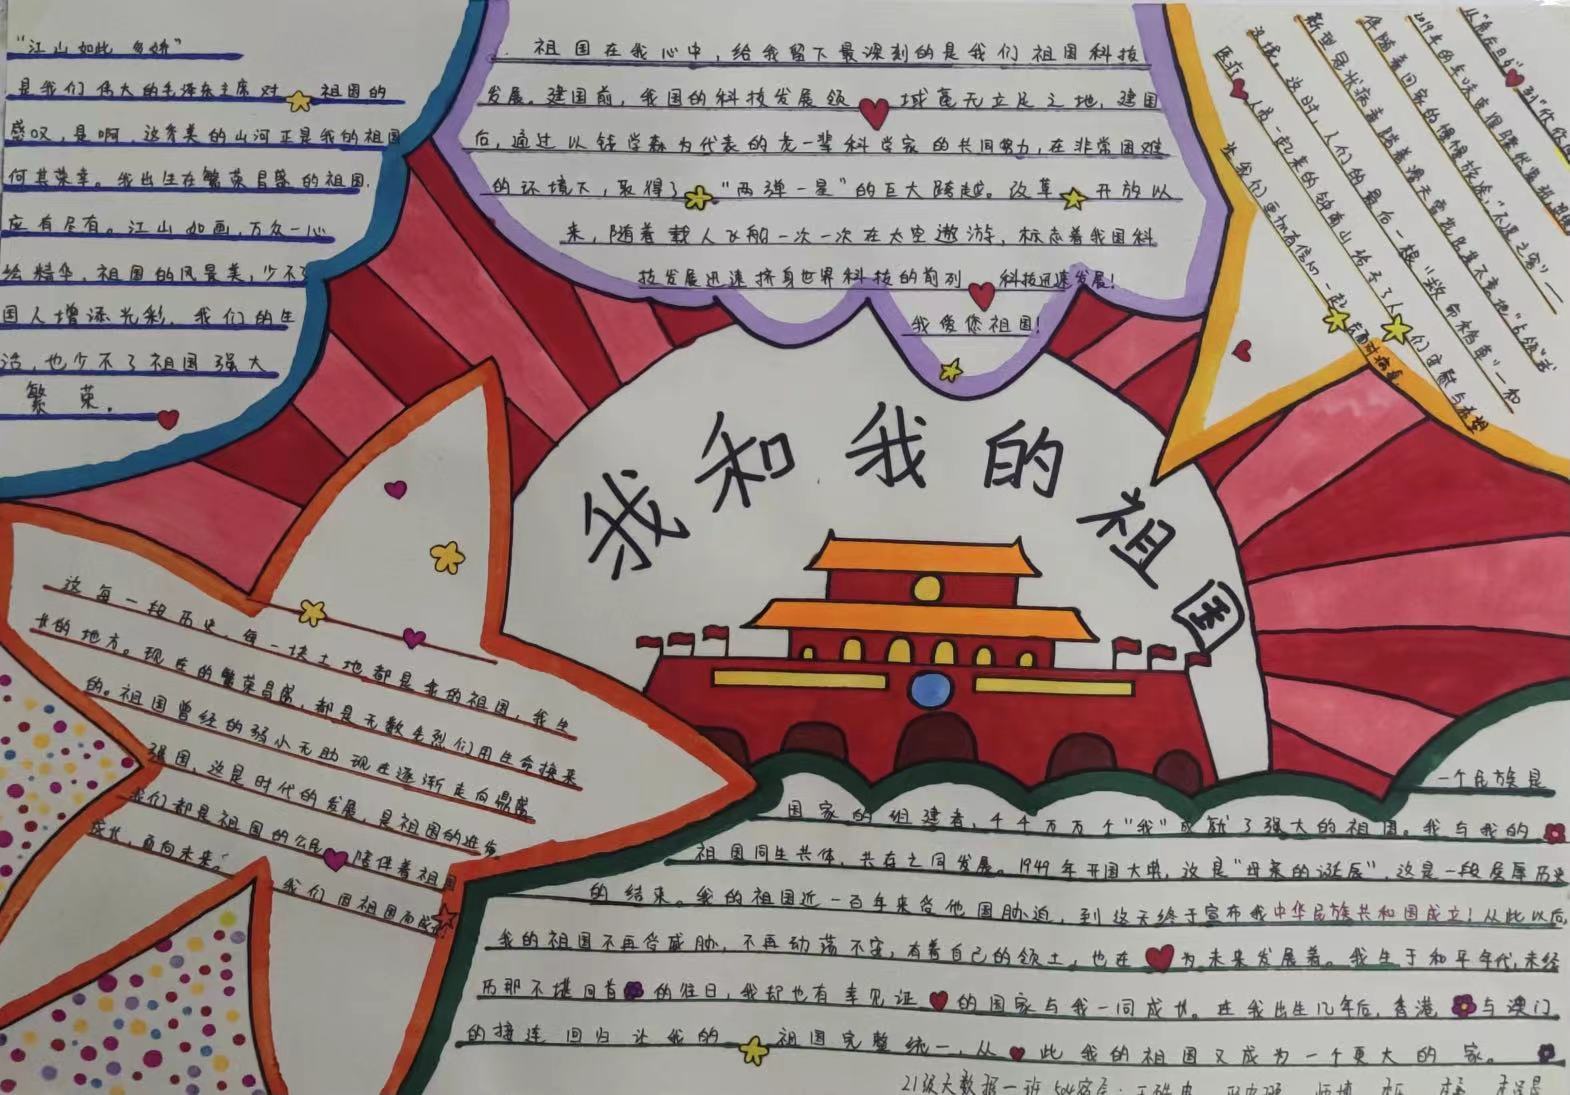 "江山如此多娇"
是我们伟大的毛泽东主席对祖国的
感叹,是啊,这秀美的山河正是我的祖国
何其荣幸。我出生在繁荣昌盛的祖国.
应有尽有。江山如画,万众一心
绘精华,祖国的风景美,少不
国人增添光彩,我们的生
活,也少不了祖国强大
繁荣.
祖国在我心中,给我留下最深刻的是我们祖国科技
发展.建国前,我国的科技发展领域毫无立足之地,建国
后,通过以钱学森为代表的老一辈科学家的共同努力,在非常困难
的环境下,取得了"两弹一星"的巨大跨越。改革开放以
来,随着载人飞船一次一次在太空遨游,标志着我国科
技发展迅速挤身世界科技的前列科技迅速发展!
我爱您祖国!
2019年的年味
伴随着回家的慢慢旅途,"不速之客"一
新型冠状病毒随着漫天雪花毫不客气地
这时,人们的最后一根"救命稻草"一和
医疗人员一起来的钟南山给予了人们安慰与希望
我们更加有信心一起去面对病毒
我和我的祖国
这每一段历史,每一块土地都是我的祖国,我生
长的地方。现在的繁荣昌盛,都是无数先烈们用生命换来
的。祖国曾经的弱小无助现在逐渐走向鼎盛
强国,这是时代的发展,是祖国的进步
我们都是祖国的公民陪伴着祖国
成长,面向未来。
我们因祖国而成
一个民族是
国家的组建者,千千万万个"我"成就了强大的祖国。我与我的
祖国同生共体,共存之同发展。1949年开国大典,这是"母亲的诞辰",这是一段屈辱历史
的结束。我的祖国近一百年来受他国胁迫,到这天终于宣布我中华民族共和国成立!从此以后,
我的祖国不再受威胁,不再动荡不安,有着自己的领土,也在为未来发展着。我生于和平年代,未经
历那不堪回首的往日,我却也有幸见证的国家与我一同成长。在我出生几年后,香港与澳门
的接连回归让我的祖国完整统一,从此我的祖国又成为一个更大的家。
21级大数据一班504宿舍: